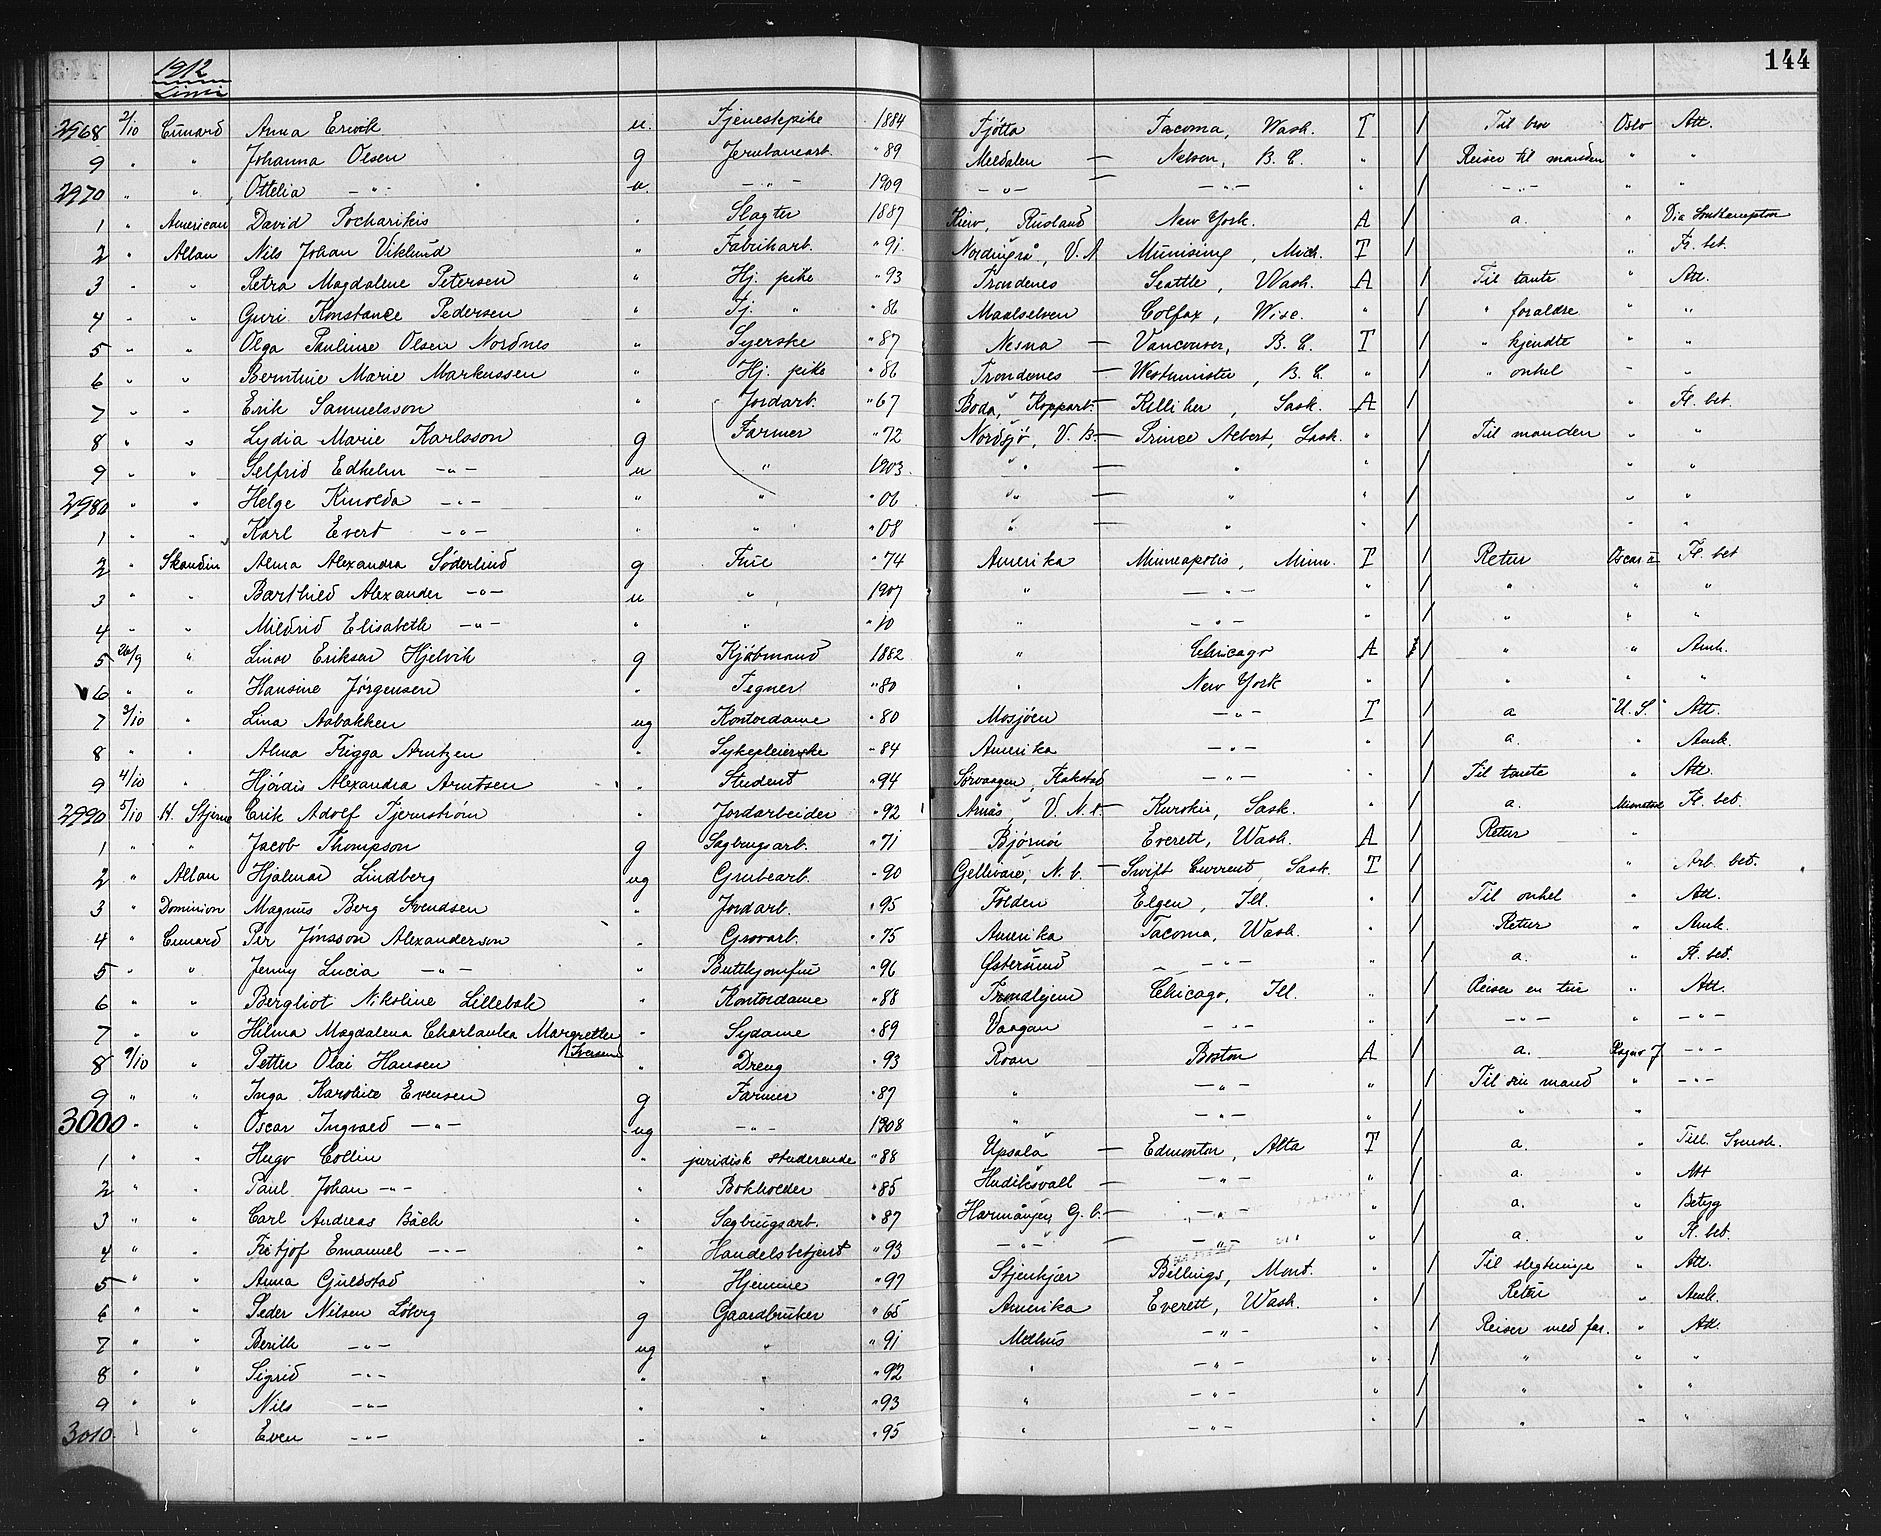 144
1912
Linie
2968 2/10 Cunard Anna Ervik u. Tjenestepike 1884 Tjøtta Tacoma, Wash. T / Til bro Oslo Att.
9 " " Johanna Olsen g Jernbanearb. " 89 Meldalen — Nelson, B. C. " / Reiser til manden " "
2970 " " Ottilia — " — u. — " — 1909 — " — — — " — " / — " — " "
1 " American David Pocharikis " Slagter 1887 Kiew, Rusland New York. A / a. " Via Southampton
2 " Allan Nils Johan Viklund " Fabrikarb. " 91 Nordingrå, V. N Munising, Mich. T / " Fl. bet.
3 " " Petra Magdalene Petersen " Hj. pike " 93 Trondenes Seattle, Wash. A / Til tante " Att.
4 " " Guri Konstance Pedersen " Tj. " " 86 Maalselven Colfax, Wisc. " / " forældre " "
5 " " Olga Pauline Olsen Nordnes " Syerske " 87 Nesna — Vancouver, B. C. T / " kjendte " "
6 " " Berntine Marie Markussen " Hj. pike " 86 Trondenes — Westminster, B. C. " / " onkel " "
7 " " Erik Samuelsson " Jordarb. " 67 Boda, Kopparb. — Killiher, Sask. A / " Fl. bet.
8 " " Lydia Marie Karlsson g Farmer " 72 Nordsjö, V. B. — Prince Albert, Sask. " / Til manden " "
9 " " Selfrid Edhelm — " — u " 1903 " — " " / " "
2980 " " Helge Kinolda — " — " " " 06 " — " " / " "
1 " " Karl Evert — " — " " " 08 " — " " / " "
2 " Skandin Alma Alexandra Söderlind g Frue " 74 Amerika Minneapolis, Minn. T / Retur Oscar II Fl. bet
3 " " Barthied Alexander — " — u " 1907 " — " — " / " " "
4 " " Mildrid Elisabeth — " — " " " 10 " — " — " / " " "
5 26/9 " Linov Eriksen Hjelvik g Kjøbmand 1882 " Chicago A / " " Amk.
6 " " Hansine Jørgensen " Tegner " 80 " New York " / " " "
7 3/10 " Lina Aabakken ug Kontordame " 80 Mosjöen — " — T / a "U. S." Att.
8 " " Alma Frigga Arntzen " Sykepleierske " 84 Amerika — " — " / a. " Amk.
9 4/10 " Hjördis Alexandra Arntsen " Student " 94 Sørvaagen, Flakstad — " — " / Til tante " Att.
2990 5/10 H. Stjerne Erik Adolf Tjernström " Jordarbeider " 92 Arnäs, V. N. l. — Kuroki, Sask. " / a. Fl. bet.
1 " " Jacob Thompson g Sagbrugsarb. " 71 Bjørnör Everett, Wash. A / Retur "
2 " Allan Hjalmar Lindberg ug Grubearb. " 90 Gellivare, N. b. — Swift Current, Sask. T / " Arb. bet.
3 " Dominion Magnus Berg Svendsen " Jordarb. " 95 Folden Elgen, Ill. " / Til onkel " Att.
4 " Cunard Per Jönsson Alexanderson " Grovarb. " 75 Amerika Tacoma, Wash. " / Retur " Amk.
5 " " Jenny Lucia — " — " Butikjomfru " 96 Østersund — " — " / a. " Fl. bet.
6 " " Bergliot Nikoline Lillebak " Kontordame " 88 Trondhjem Chicago, Ill. " / Reiser en tur " Att.
7 " " Hilma Magdalena Charlautta Margrethe Iversen " Sydame " 89 Vaagan — " — " / — " — " — " —
8 9/10 " Petter Olai Hansen " Dreng " 93 Roan Boston A / a. Ragnv J — " —
9 " " Inga Karoline Evensen g Farmer " 87 " — " — " / Til sin mand " — " —
3000 " " Oscar Ingvald — " — ug — " — 1908 " — " — " / " "
1 " " Hugo Collin " juridisk studerende " 88 Upsala — Edmonton, Alta T / a. " Till. Svensk.
2 " " Paul Johan — " — " Bokholder " 85 Hudiksvall — — " — " / a. " Att
3 " " Carl Andreas Bäck " Sagbrugsarb. " 87 Harmånger, G. b. — — " — " / a. " Betyg
4 " " Fritjof Emanuel — " — " Handelsbetjent " 93 — " — — " — " / a. " Fl. bet.
5 " " Anna Guldstad " Hjemme " 97 Stjenkjær Billings, Mont. " / Til slegtninge " Att.
6 " " Peder Nilsen Loberg g Gaardbruker " 65 Amerika Everett, Wash. " / Retur " Amk.
7 " " Berith — " — ug " " 91 Melhus — " — " / Reiser med far. " Att.
8 " " Sigrid — " — " " " 92 " — " — " / " " "
9 " " Nils — " — " " " 93 " — " — " / " " "
3010 " " Even — " — " " " 95 " — " — " / " " "